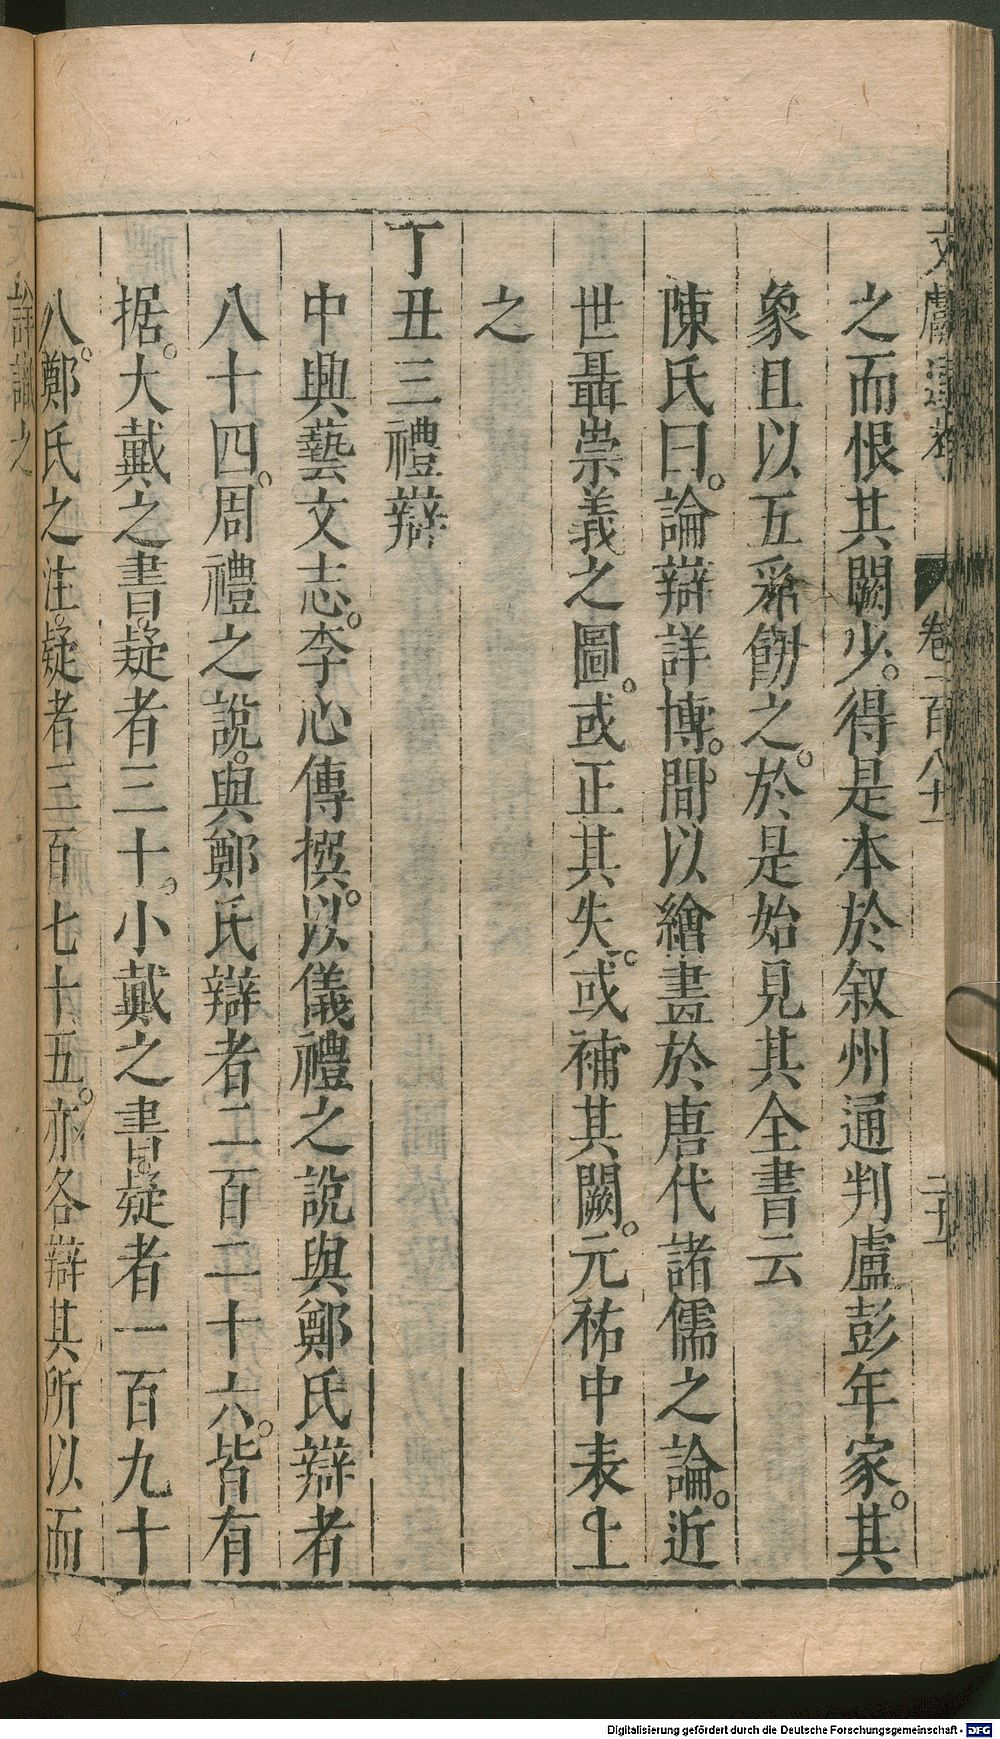 文獻通考 卷一百八十一
之而恨其闕少。得是本於叙州通判盧彭年家。其
象且以五采飭之。於是始見其全書云
陳氏曰。論辯詳博。間以繪畫於唐代諸儒之論。近
世聶崇義之圖。或正其失。或補其闕。元祐中表上
之
丁丑三禮辯
中興藝文志。李心傳撰。以儀禮之說與鄭氏辯者
八十四。周禮之說。與鄭氏辯者二百二十六。皆有
据。大戴之書。疑者三十。小戴之書。疑者一百九十
八。鄭氏之注。疑者三百七十五。亦各辯其所以而
詳識之
Digitalisierung gefördert durch die Deutsche Forschungsgemeinschaft - DFG